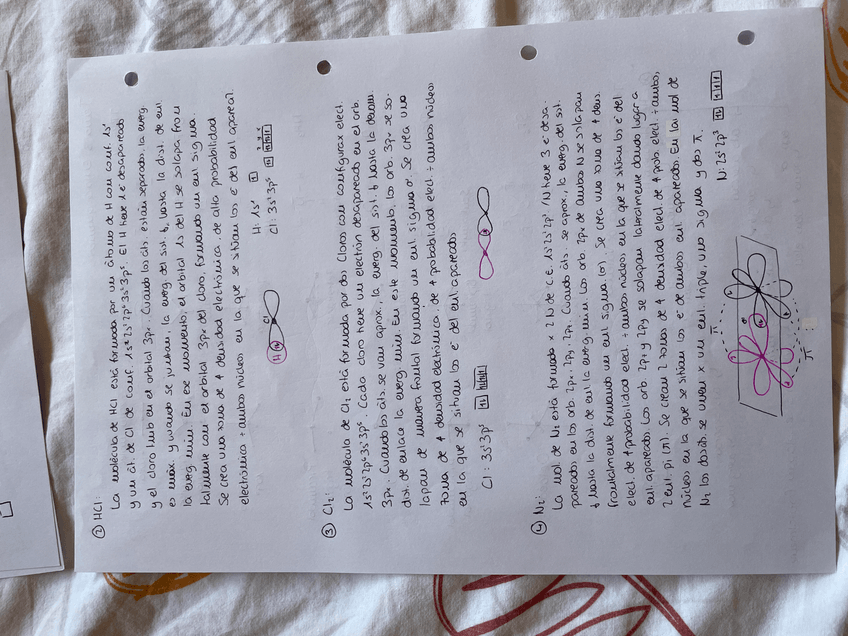 ② HCl:
La molécula de HCl está formada por un átomo de H con conf. 1s¹
y un át. de Cl de conf. 1s²2s²2p⁶3s²3p⁵. El H tiene 1 e⁻ desapareado
y el cloro tmb en el orbital 3px. Cuando los áts. están separados, la energ.
es máx. y cuando se juntan, la energ. del sist. ↓, hasta la dist. de enl.
la energ. mín. En ese momento, el orbital 1s del H se solapa fron
talmente con el orbital 3px del cloro, formando un enl. sigma.
Se crea una zona de ↑ densidad electrónica, de alta probabilidad
electrónica ÷ ambos núcleos en la que se sitúan los e⁻ del enl. aparea2.
H: 1s¹
Cl: 3s²3p⁵
H
Cl
③ Cl₂:
La molécula de Cl₂ está formada por dos Cloros con configurax elect.
1s²2s²2p⁶3s²3p⁵. Cada cloro tiene un electrón desapareado en el orb.
3px. Cuando los áts. se van aprox., la energ. del sist. ↓ hasta la
dist. de enlace la energ. mín. En este momento, los orb. 3px se so-
lapan de manera frontal formando un enl. sigma σ. Se crea una
zona de ↑ densidad electrónica, de ↑ probabilidad elect. ÷ ambos núcleos
en la que se sitúan los e⁻ del enl. apareados.
Cl: 3s²3p⁵
④ N₂:
La mol. de N₂ está formada x 2 N de C.E. 1s²2s²2p³ / N tiene 3 e⁻ desa-
pareados en los orb. 2px, 2py, 2pz. Cuando áts. se aprox., la energ. del sist.
↓ hasta la dist. de enl. la energ. mín. Los orb. 2px de ambos N se solapan
frontalmente formando un enl. sigma (σ). Se crea una zona de ↑ dens.
elect. de ↑ probabilidad elect. ÷ ambos núcleos en la que se sitúan los e⁻ del
enl. apareados. Los orb. 2py y 2pz se solapan lateralmente dando lugar a
2 enl. pi (π). Se crean 2 zonas de ↑ densidad elect. de ↑ prob. elect. ÷ ambos
núcleos en la que se sitúan los e⁻ de ambos enl. apareados. En la mol. de
N₂ los áts. se unen x un enl. triple, uno sigma y dos π.
N: 2s²2p³
π
σ
π